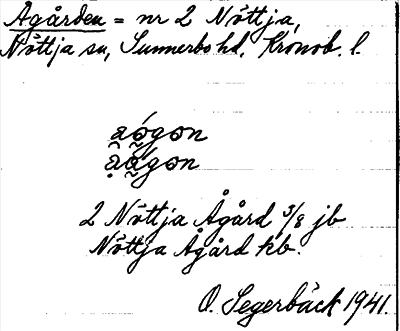 Ågården = nr 2 Nöttja,
Nöttja sn, Sunnerbo hd, Kronob. l.
2 Nöttja Ågård 3/8 jb
Nöttja Ågård kb.
O. Segerbäck 1941.